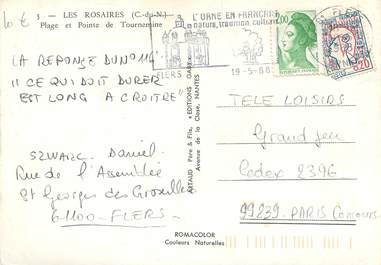 10 €
3 - LES ROSAIRES (C.-du-N.)
Plage et Pointe de Tournemine
L'ORNE EN FRANÇAIS
nature, tradition, culture
FLERS
19-5-86
LA REPONSE DU NO 114
" CE QUI DOIT DURER
EST LONG A CROITRE "
SZWARC Daniel
Rue de l'Assemblée
St Georges des Groseillers
61100 - FLERS
ARTAUD Père & Fils, "EDITIONS GABY"
Avenue de la Close, NANTES
TELE LOISIRS
Grand jeu
Cedex 2396
99239 - PARIS Concours
ROMACOLOR
Couleurs Naturelles